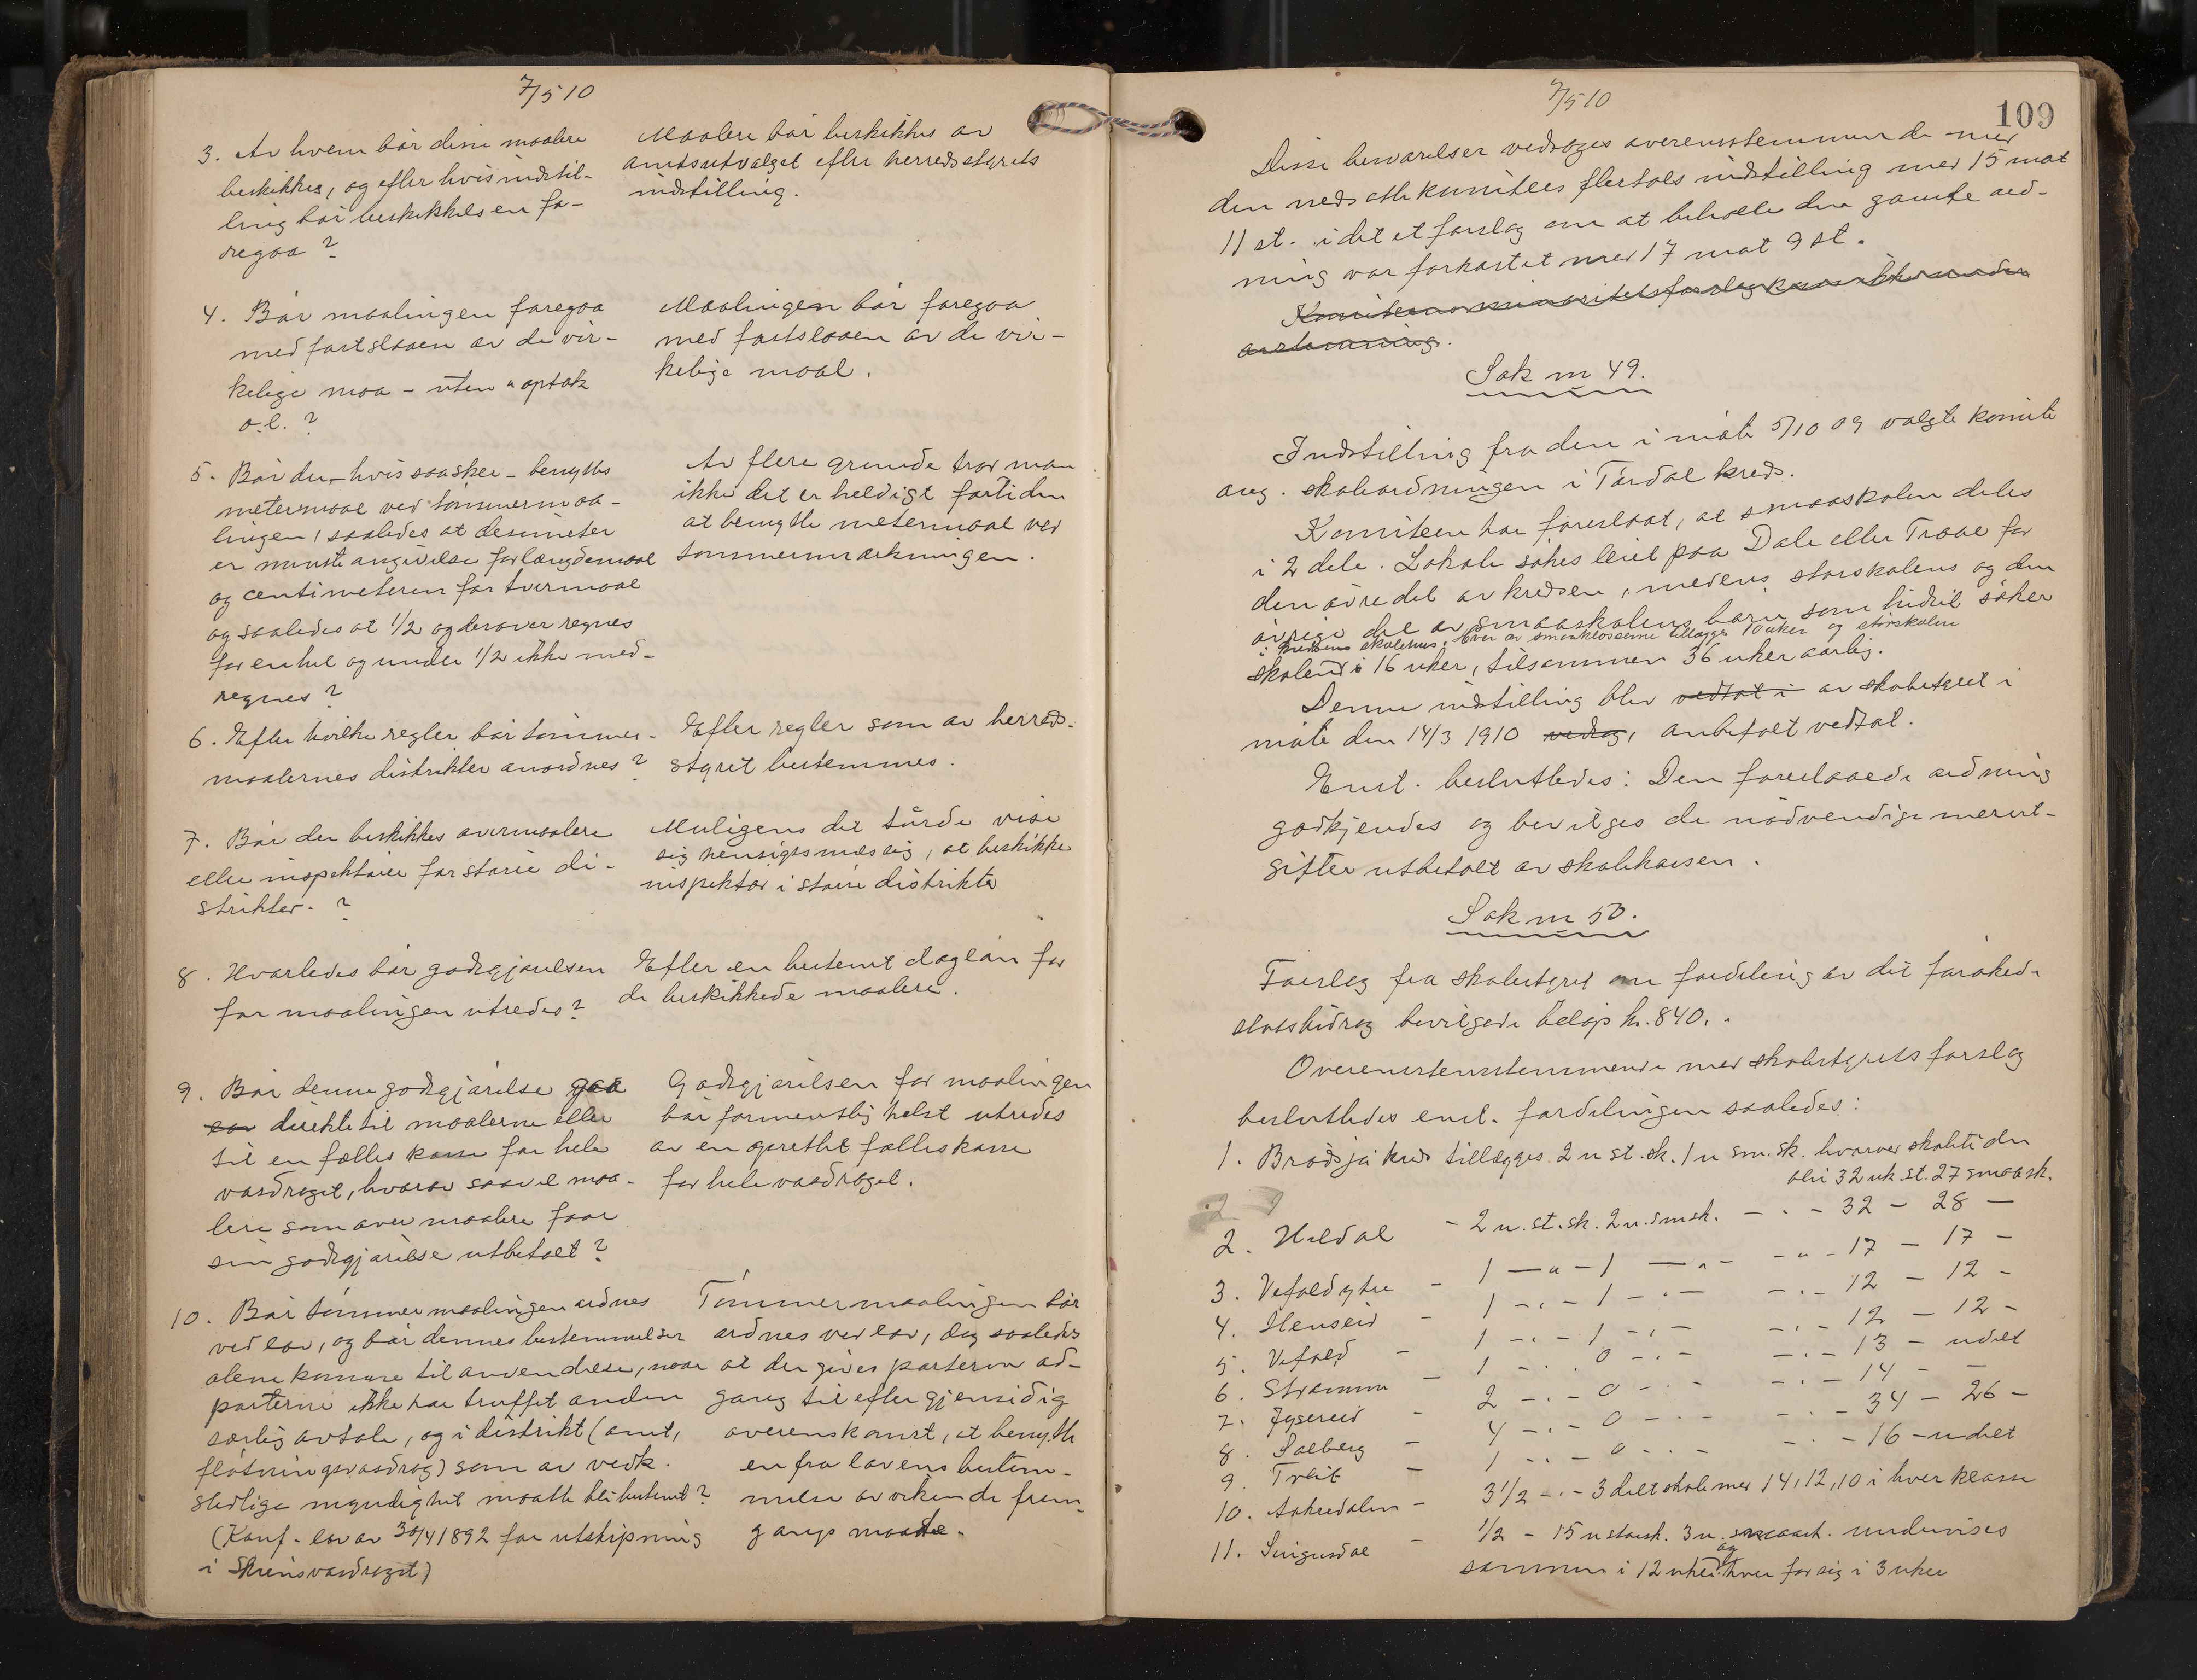 7/5 10
3. Av hvem bör disse maalere
beskikkes, og efter hvis indstil-
ling bör beskikkelsen fo-
regaa?
Maalere bör beskikkes av
amtsutvalget efter herredsstyrets
indstilling.
4. Bör maalingen foregaa
med fastslaaen av de vir-
kelige maa - uten "optak
o.l.?
Maalingen bör foregaa
med fastslaaen av de vir-
kelige maal.
5. Bör der - hvis saa sker - benyttes
metermaal ved tömmermaa-
lingen, saaledes at desimeter
er minste angivelse for længdemaal
og centimeteren for tvermaal
og saaledes at 1/2 og derover regnes
for en hel og under 1/2 ikke med-
regnes?
Av flere grunde tror man
ikke det er heldigt for tiden
at benytte metermaal ved
tömmermerkningen.
6. Efter hvilke regler bör tömmer-
maalernes distrikter anordnes?
Efter regler som av herreds-
styret bestemmes.
7. Bör der beskikkes overmaalere
eller inspektörer for större di-
strikter. ?
Muligens det turde vise
sig hensigtsmæssig, at beskikke
inspektör i större distrikter
8. Hvorledes bör godtgjörelsen
for maalingen utredes?
Efter en bestemt daglön for
de beskikkede maalere.
9. Bör denne godtgjörelse gaa
direkte til maalerne eller
til en fælles kasse for hele
vasdraget, hvorav saavel maa-
lere som overmaalere faar
sin godtgjörelse utbetalt?
Godtgjörelsen for maalingen
bör formentlig helst utredes
av en oprettet felleskasse
for hele vasdraget.
10. Bör tömmermaalingen ordnes
ved lov, og bör dennes bestemmelser
alene komme til anvendelse, naar
parterne ikke har truffet anden
særlig avtale, og i distrikt (amt,
flötningsvasdrag) som av vedk.
stedlige myndighet maatte bli bestemt?
(Konf. lov av 30/4 1892 for utskipning
i Skiensvasdraget)
Tömmermaalingen bör
ordnes ved lov, dog saaledes
at der gives parterne ad-
gang til efter gjensidig
overenskomst, at benytte
en fra lovens bestem-
melse avvikende frem-
gangsmaade.
7/5 10
109
Disse besvarelser vedtoges overensstemmende med
den nedsatte komitees flertals indstilling med 15 mot
11 st. idet et forslag om at beholde den gamle ord-
ning var forkastet med 17 mot 9 st.
Komiteens minoritetsforslag kom ikke under
avstemning.
Sak nr 49.
Indstilling fra den i möte 5/10 09 valgte komite
ang. skoleordningen i Tördal kreds.
Komiteen har foreslaat, at smaaskolen deles
i 2 dele. Lokale sökes leiet paa Dale eller Traae for
den övre del av kredsen, medens storskolens og den
övrige del av smaaskolens barn som hidtil söker
i kredsens skolehus. Hver av smaaklasserne tillægges 10 uker og storskolen
skolen i 16 uker, tilsammen 36 uker aarlig.
Denne indstilling blev vedtat i av skolestyret i
möte den 14/3 1910 vedtog, anbefalt vedtat.
Enst. besluttedes: Den foreslaaede ordning
godkjendes og bevilges de nödvendige merut-
gifter utbetalt av skolekassen.
Sak nr 50.
Forslag fra skolestyret om fordeling av det forökede
statsbidrag bevilgede belöp kr. 840,-
Overensstemmende med skolestyrets forslag
besluttedes enst. fordelingen saaledes:
1. Brödsjö kreds tillægges 2 u st. sk. 1 u sm. sk. hvorved skoletiden
blir 32 uk. st. 27 smaask.
2. Heldal - 2 u. st. sk. 2 u. smsk. - . - 32 - 28 -
3. Vefald ytre - 1 — " - 1 — " - - " - 17 - 17 -
4. Henseid - 1 - . - 1 - . - - . - 12 - 12 -
5. Vefald - 1 - . - 1 - . - - . - 12 - 12 -
6. Strömme - 1 - . - 0 - . - - . - 13 - udelt
7. Jysereid - 2 - . - 0 - . - - . - 14 - -
8. Solberg - 4 - . - 0 - . - - . - 34 - 26 -
9. Tveit - 1 - . - 0 - . - - . - 16 - udelt
10. Aakredalen - 3 1/2 - . - 3 delt skole med 14, 12, 10 i hver klasse
11. Singusdal - 1/2 - 15 u storsk. 3 u. smaask. undervises
sammen i 12 uker og hver for sig i 3 uker